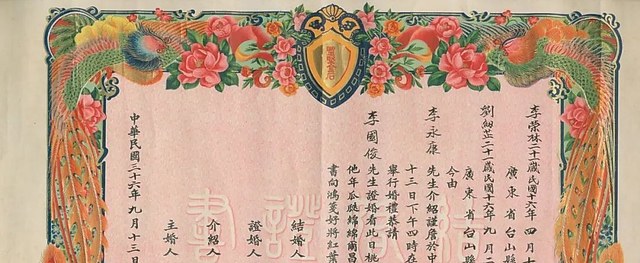 李榮林二十一歲民國十六年四月十
廣東省台山縣
劉細二十一歲民國十六年九月二
廣東省台山縣
今由
李永康先生介紹謹詹於中
十三日下午四時在
舉行婚禮恭請
李國俊先生證婚看此日桃
他年瓜瓞綿綿爾昌
書向鴻箋好將紅葉
結婚人
證婚人
介紹人
主婚人
中華民國三十六年九月十三日
結婚證書